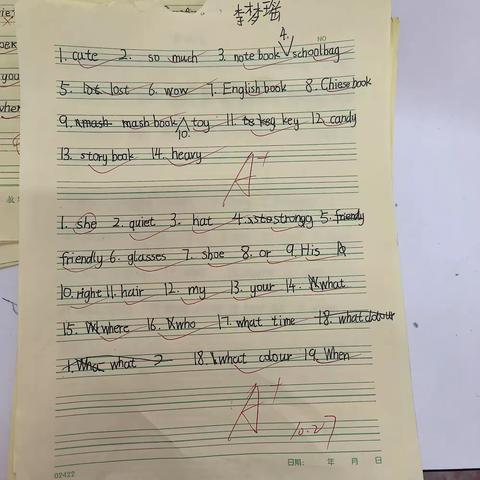 李梦瑶
NO
4.
1. cute 2. so much 3. notebook schoolbag
5. lost 6. wow 7. English book 8. Chiese book
9. mash book toy 11. key 12. candy
10.
13. story book 14. heavy
A+
1. she 2. quiet 3. hat 4. strongg 5. friendly
friendly 6. glasses 7. shoe 8. or 9. His
10. right 11. hair 12. my 13. your 14. what
15. where 16. who 17. what time 18. what colour
1. what 2 18. what colour 19. When
A+
10.27
日期: 年 月 日
02422